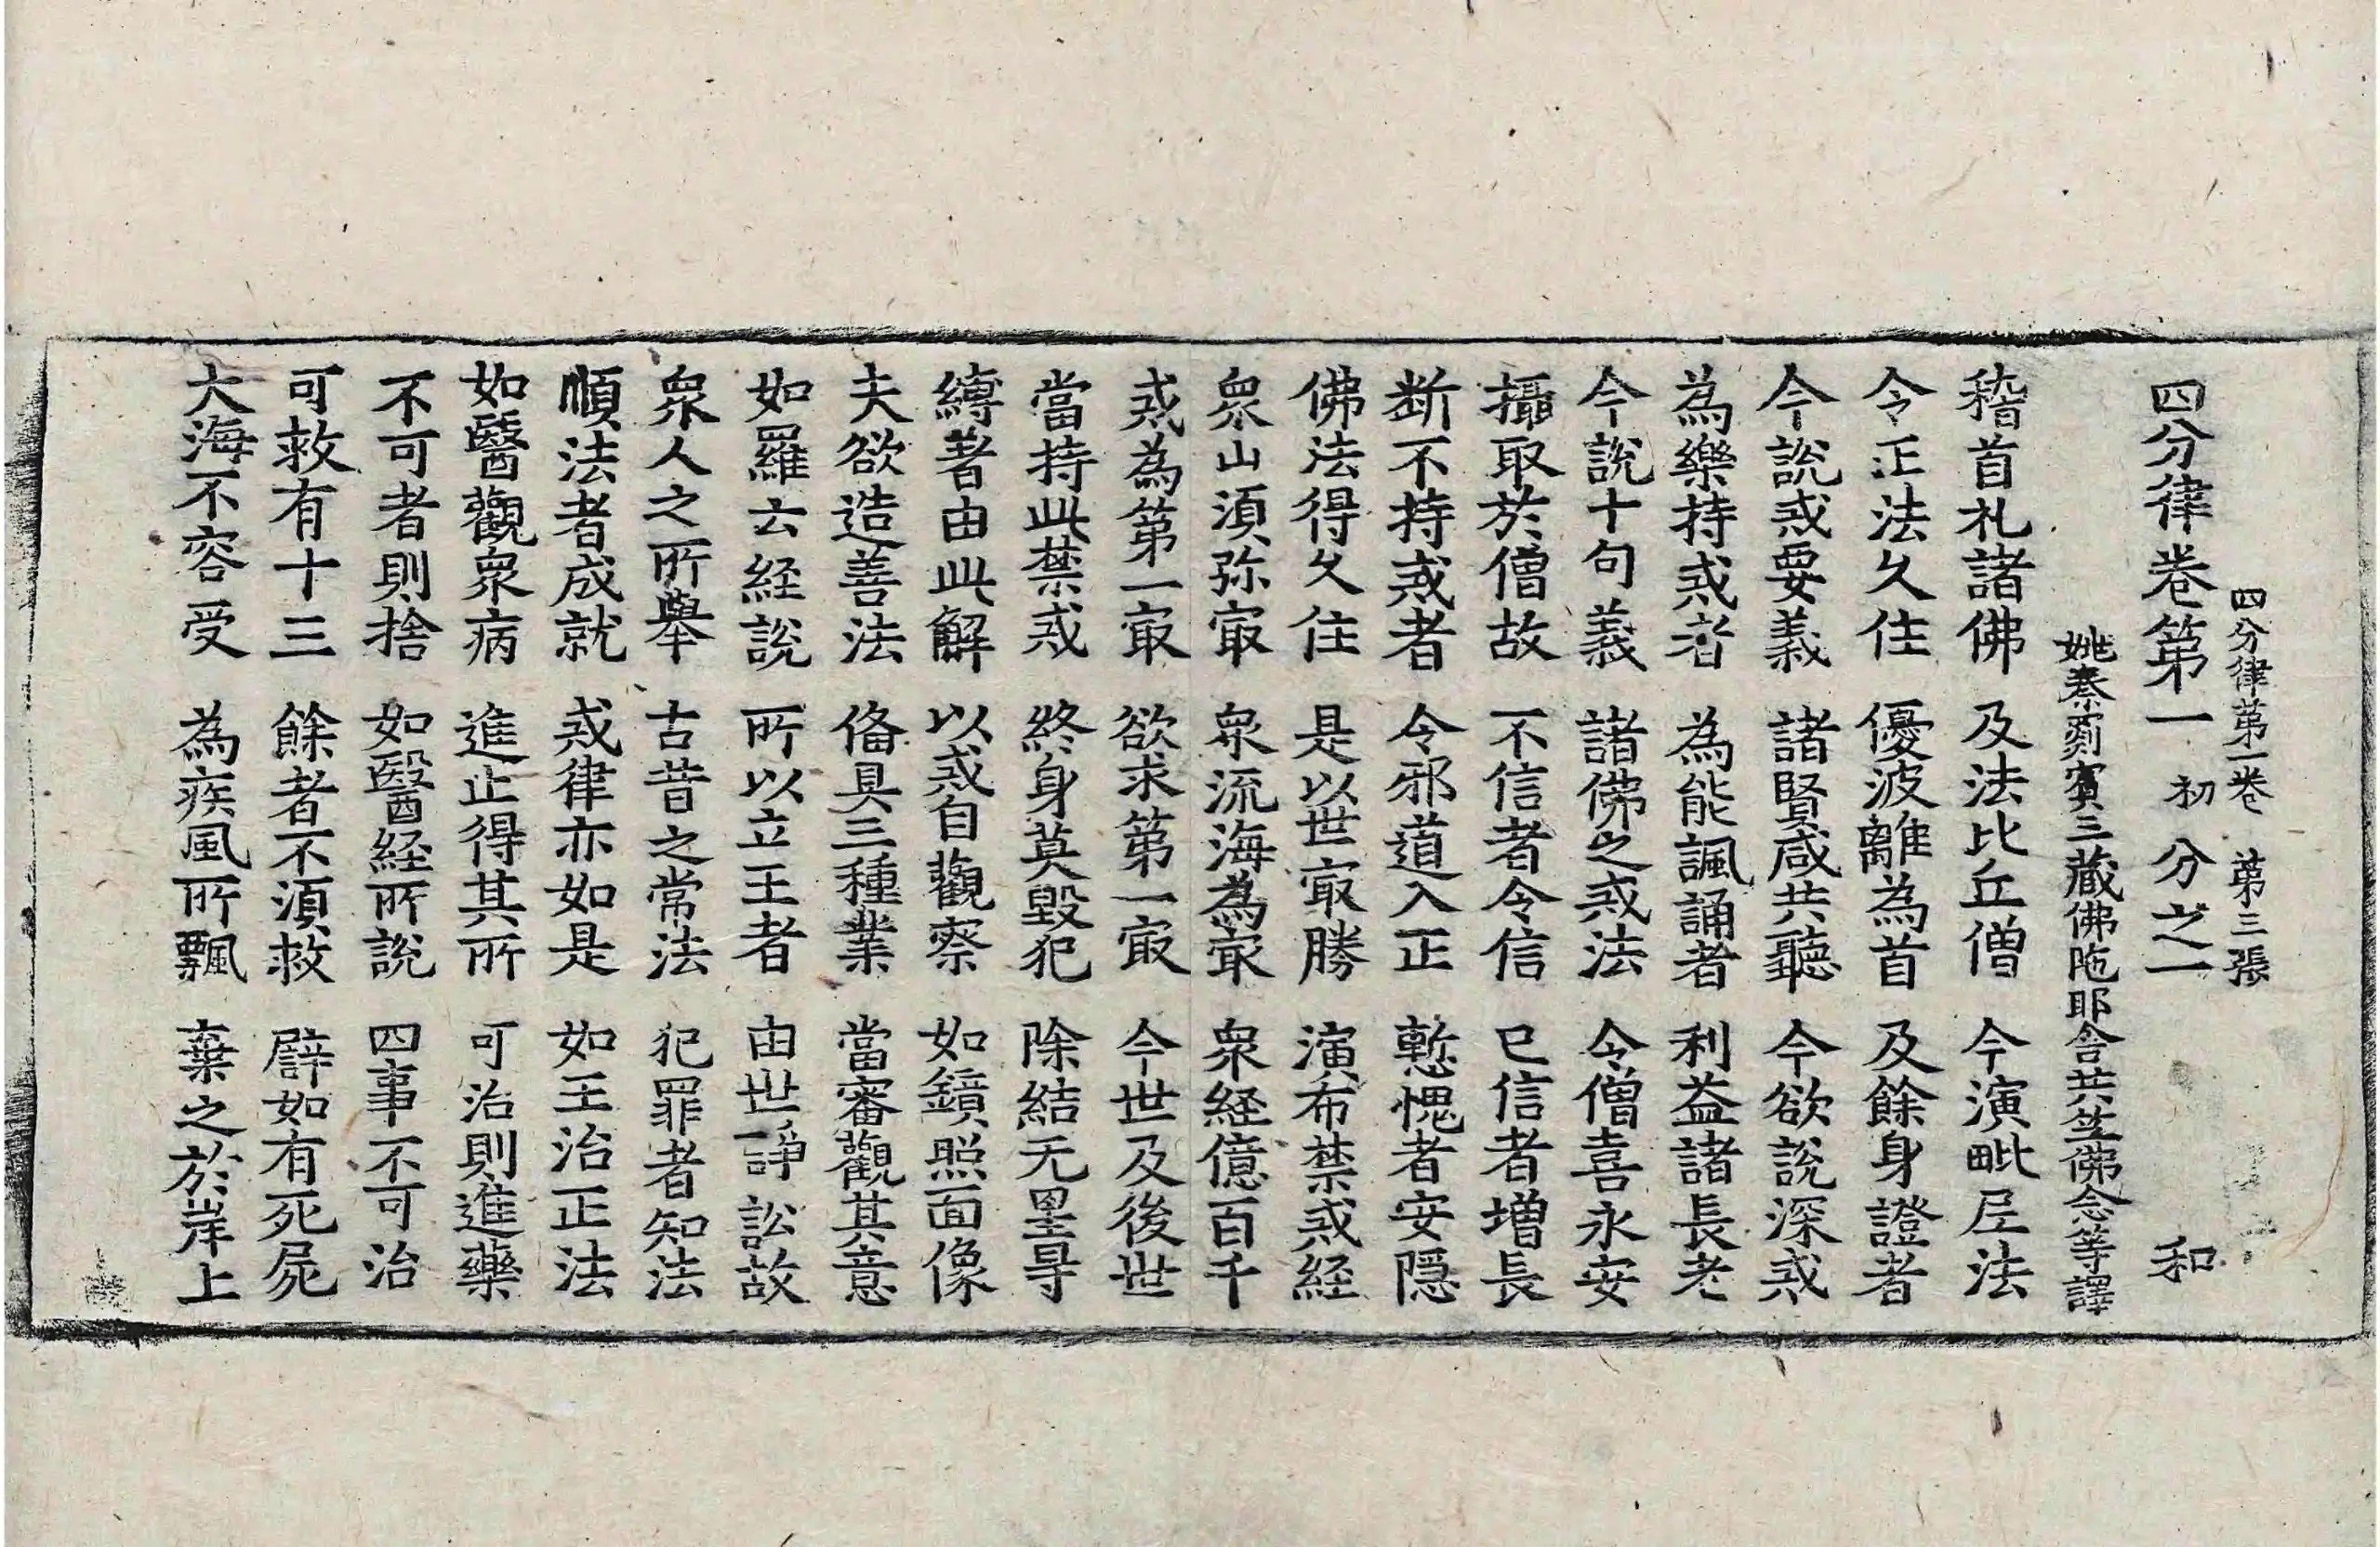 四分律第一卷　第三張　和
四分律卷第一　初分之一
姚秦罽賓三藏佛陁耶舍共笁佛念等譯
稽首礼諸佛　及法比丘僧　今演毗尼法
令正法久住　優波離為首　及餘身證者
今說戒要義　諸賢咸共聽　今欲說深戒
為樂持戒者　為能諷誦者　利益諸長老
今說十句義　諸佛之戒法　令僧喜永安
攝取於僧故　不信者令信　已信者增長
断不持戒者　令邪道入正　慙愧者安隱
佛法得久住　是以世㝡勝　演布禁戒經
衆山須弥㝡　衆流海為㝡　衆経億百千
戒為第一㝡　欲求第一㝡　今世及後世
當持此禁戒　終身莫毀犯　除結无罣㝵
縛著由此解　以戒自觀察　如鏡照面像
夫欲造善法　俻具三種業　當審觀其意
如羅云経說　所以立王者　由世諍訟故
衆人之所舉　古昔之常法　犯罪者知法
順法者成就　戒律亦如是　如王治正法
如醫觀衆病　進止得其所　可治則進藥
不可者則捨　如醫経所說　四事不可治
可救有十三　餘者不須救　辟如有死屍
大海不容受　為疾風所飄　棄之於岸上